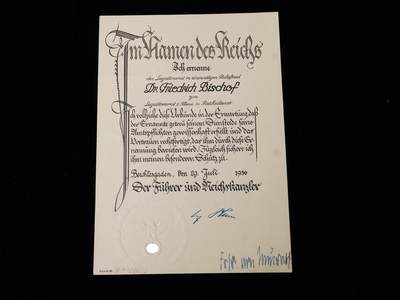 Im Namen des Reichs
Ich ernenne
den Legationsrat im einstweiligen Ruhestand
Dr. Friedrich Bischof
zum
Legationsrat I. Klasse im Reichsdienst
Ich vollziehe diese Urkunde in der Erwartung, daß
der Ernannte getreu seinem Diensteide seine
Amtspflichten gewissenhaft erfüllt und das
Vertrauen rechtfertigt, das ihm durch diese Er-
nennung bewiesen wird. Zugleich sichere ich
ihm meinen besonderen Schutz zu.
Berchtesgaden, den 29. Juli 1936
Der Führer und Reichskanzler